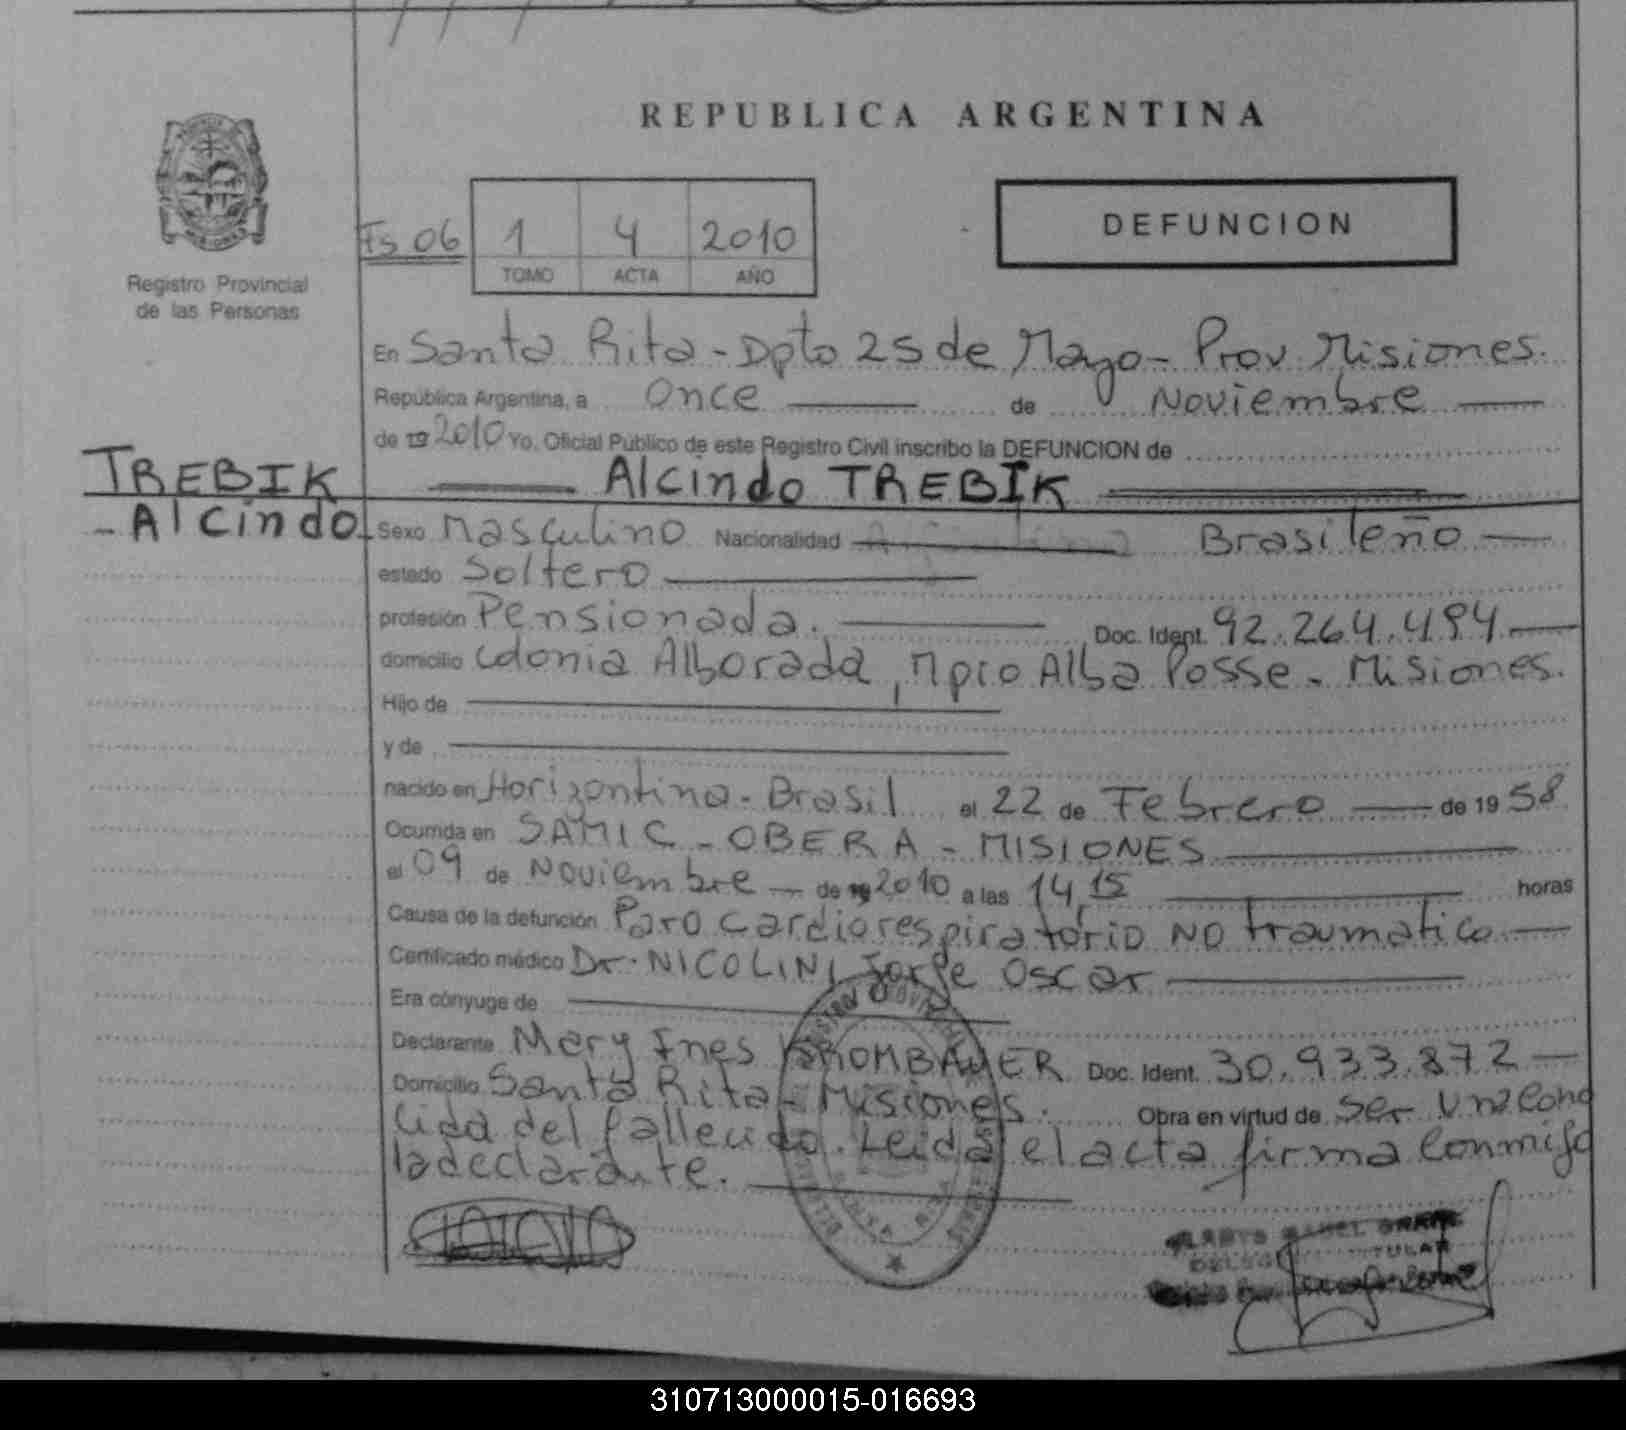 REPUBLICA ARGENTINA
Registro Provincial
de las Personas
Fs 06
1 4 2010
TOMO ACTA AÑO
DEFUNCION
En Santa Rita - Dpto 25 de Mayo - Prov. Misiones.
República Argentina, a Once de Noviembre
de 19 2010 Yo, Oficial Público de este Registro Civil inscribo la DEFUNCION de
TREBIK
- Alcindo
Alcindo TREBIK
Sexo Masculino Nacionalidad Brasileño
estado Soltero
profesión Pensionada. Doc. Ident. 92.264.494
domicilio Colonia Alborada, Mpio Alba Posse - Misiones.
Hijo de
y de
nacido en Horizontina - Brasil el 22 de Febrero de 19 58
Ocurrida en SAMIC - OBERA - MISIONES
el 09 de Noviembre de 19 2010 a las 14,15 horas
Causa de la defunción Paro cardiorespiratorio NO traumatico
Certificado médico Dr. NICOLINI Jorge Oscar
Era cónyuge de
Declarante Mery Ines KROMBAUER Doc. Ident. 30.933.872
Domicilio Santa Rita - Misiones. Obra en virtud de ser una cono
cida del fallecido. Leida el acta firma conmigo
la declarante.
TITULAR
310713000015-016693